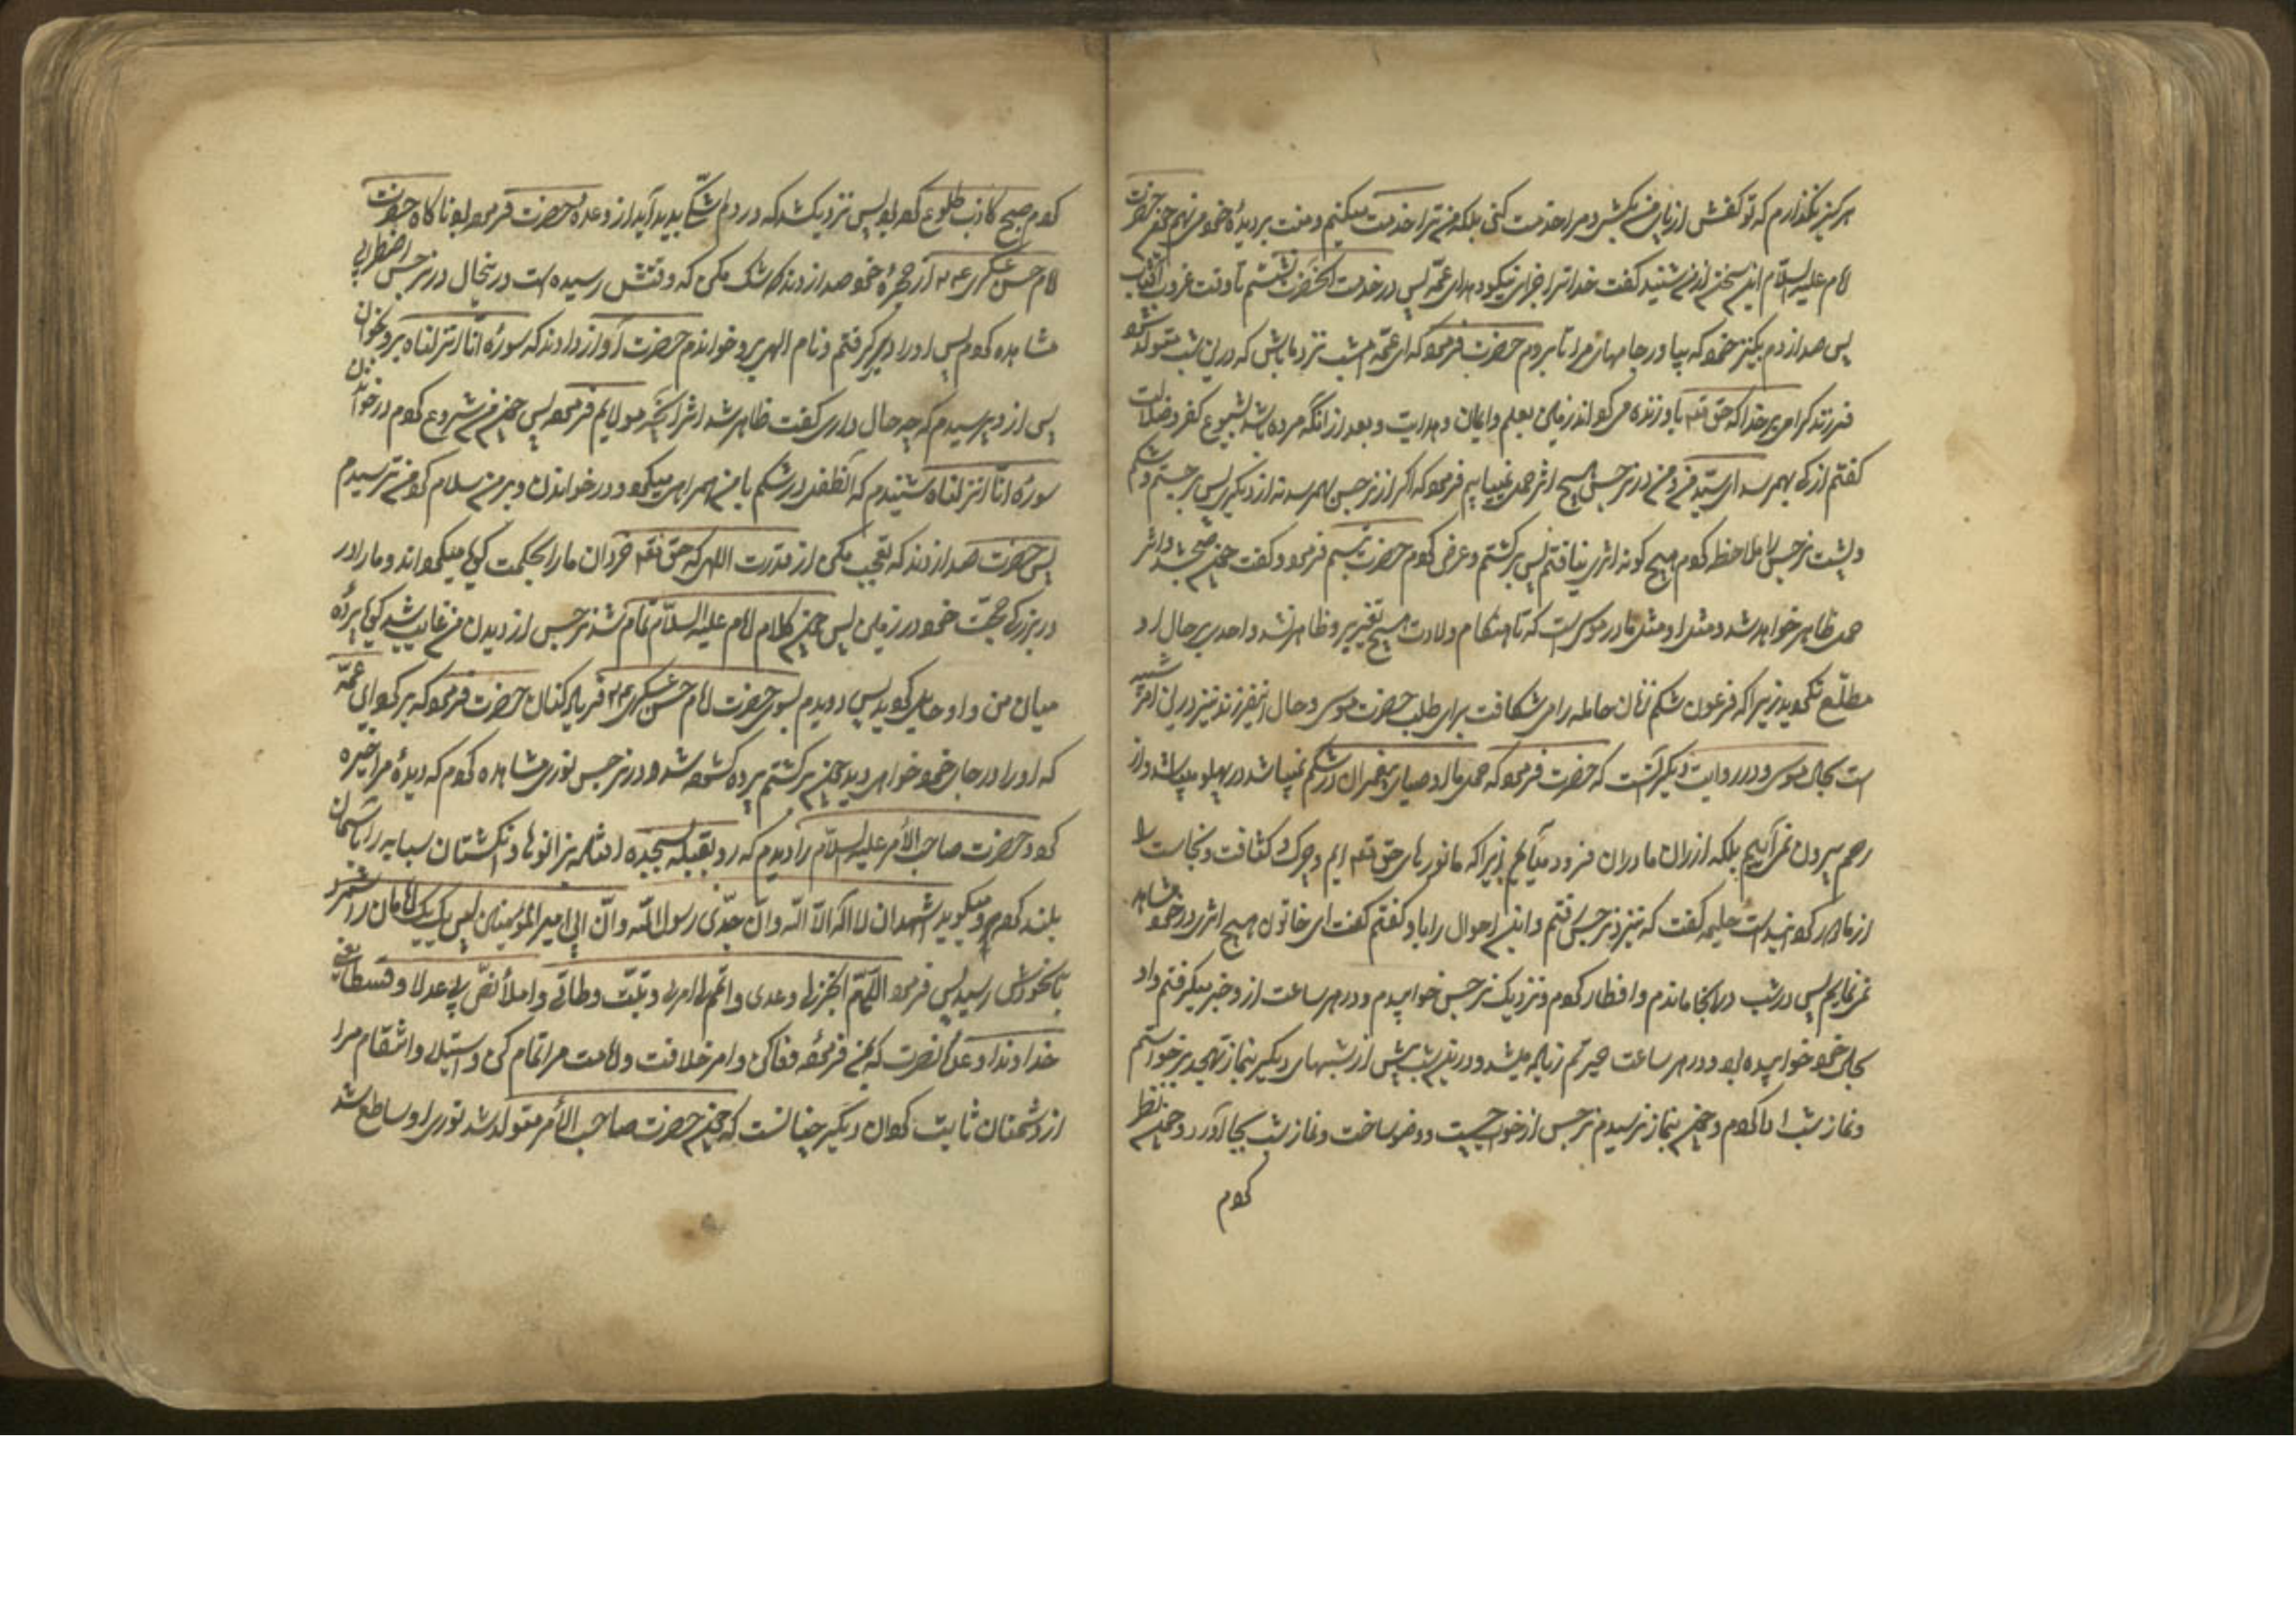 هرگز نگذارم که تو کفش از پای من بکشی و مرا خدمت کنی بلکه من ترا خدمت میکنم و منت بر دیدهٔ خود می نهم چون حضرت
امام علیه السلام این سخن از من شنید گفت خدا ترا جزای نیکو دهد ای عمه پس در خدمت آنحضرت نشستم تا وقت غروب آفتاب
پس صدا زدم بکنیز خود که بیاور جامهای مرا تا بروم حضرت فرمود که ای عمه امشب نزد ما باش که در این شب متولد میشود
فرزند گرامی بر خدا که حق تعه باو زنده می گرداند زمین را بعلم و ایمان و هدایت بعد از آنکه مرده باشد بشیوع کفر و ضلالت
گفتم از کی بهم رسد ای سید من و من در نرجس هیچ اثر حمل نمییابم فرمود که اگر از نرجس بهم رسد نه از دیگری پس برجستم و شکم
و پشت نرجس را ملاحظه کردم هیچ گونه اثری نیافتم پس برگشتم و عرض کردم حضرت تبسم فرمود و گفت چون صبح شد اثر
حمل ظاهر خواهد شد و مثل او مثل مادر موسی است که تا هنگام ولادت هیچ تغییر بر او ظاهر نشد و احدی بر حال او
مطلع نگردید زیرا که فرعون شکم زنان حامله را می شکافت برای طلب حضرت موسی و حال این فرزند نیز در این امر شبیه
است بحال موسی و در روایت دیگر آنست که حضرت فرمود که حمل ما اوصیای پیغمبران در شکم نمیباشد در پهلو میباشد و از
رحم بیرون نمی آییم بلکه از ران مادران فرود میآیم زیرا که ما نورهای حق تعه ایم و چرک و کثافت و نجاست را
از ما دور گردانیده است حلیمه گفت که بنزد نرجس رفتم و این احوال را باو گفتم گفت ای خاتون هیچ اثر در خود مشاهده
نمی نمایم پس در شب در آنجا ماندم و افطار کردم و نزدیک نرجس خوابیدم و در هر ساعت از او خبر میگرفتم و او
بجای خود خوابیده بود و در هر ساعت حیرتم زیاده میشد و در این شب بیش از شبهای دیگر بنماز تهجد برخواستم
و نماز شب ادا کردم و چون بنماز وتر رسیدم نرجس از خواب جست و وضو ساخت و نماز شب بجا آورد و چون نظر
کردم
کردم صبح کاذب طلوع کرده بود پس نزدیک شد که در دلم شکی پدید آید از وعدهٔ که حضرت فرموده بود ناگاه حضرت
امام حسن عسکری ع از حجرهٔ خود صدا زدند که شک مکن که وقتش رسیده است در این حال در نرجس اضطرابی
مشاهده کردم پس او را در بر گرفتم و نام الهی بر او خواندم حضرت آواز دادند که سورهٔ انا انزلناه بر او بخوان
پس از او پرسیدم که چه حال داری گفت ظاهر شد اثر آنچه مولایم فرمود پس چون من شروع کردم در خواندن
سورهٔ انا انزلناه شنیدم که آن طفل در شکم با من همراهی میکرد در خواندن و بر من سلام کرد من ترسیدم
پس حضرت صدا زدند که تعجب مکن از قدرت الهی که حق تعه خردان ما را بحکمت گویا میگرداند و ما را در
بزرگی حجت خود در زمین پس چون کلام امام علیه السلام تمام شد نرجس از دیدن من غایب شد گویا پردهٔ
میان من و او حایل گردید پس دویدم بسوی حضرت امام حسن عسکری فریاد کنان حضرت فرمود که برگرد ای عمه
که او را در جای خود خواهی دید چون برگشتم پرده گشوده شد و در نرجس نوری مشاهده کردم که دیدهٔ مرا خیره
کرد و حضرت صاحب الأمر علیه السلام را دیدم که رو بقبله بسجده افتاده بزانوها و انگشتان سبابه را بآسمان
بلند کرده و میگوید اشهد ان لا اله الا الله و ان جدی رسول الله و ان ابی امیر المؤمنین پس یک یک امامان را شمرد
تا بخودش رسید پس فرمود اللهم انجز لی وعدی و اتمم لی امری و ثبت وطأتی و املأ الارض بی عدلا و قسطا یعنی
خداوندا وعدهٔ نصرت که بمن فرمودهٔ وفا کن و امر خلافت و امامت مرا تمام کن و استیلا و انتقام مرا
از دشمنان ثابت گردان دیگر چنانست که چون حضرت صاحب الأمر متولد شد نوری از او ساطع شد